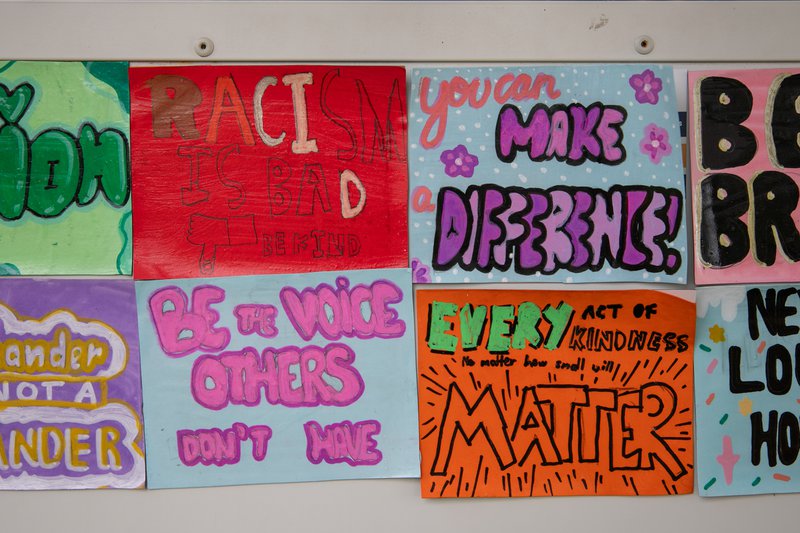 ion
RACISM
IS BAD
BE KIND
you can
MAKE
a
DIFFERENCE!
BE
BR
ander
NOT A
ANDER
BE THE VOICE
OTHERS
DON'T HAVE
EVERY ACT OF
KINDNESS
No matter how small will
MATTER
NE
LO
HO